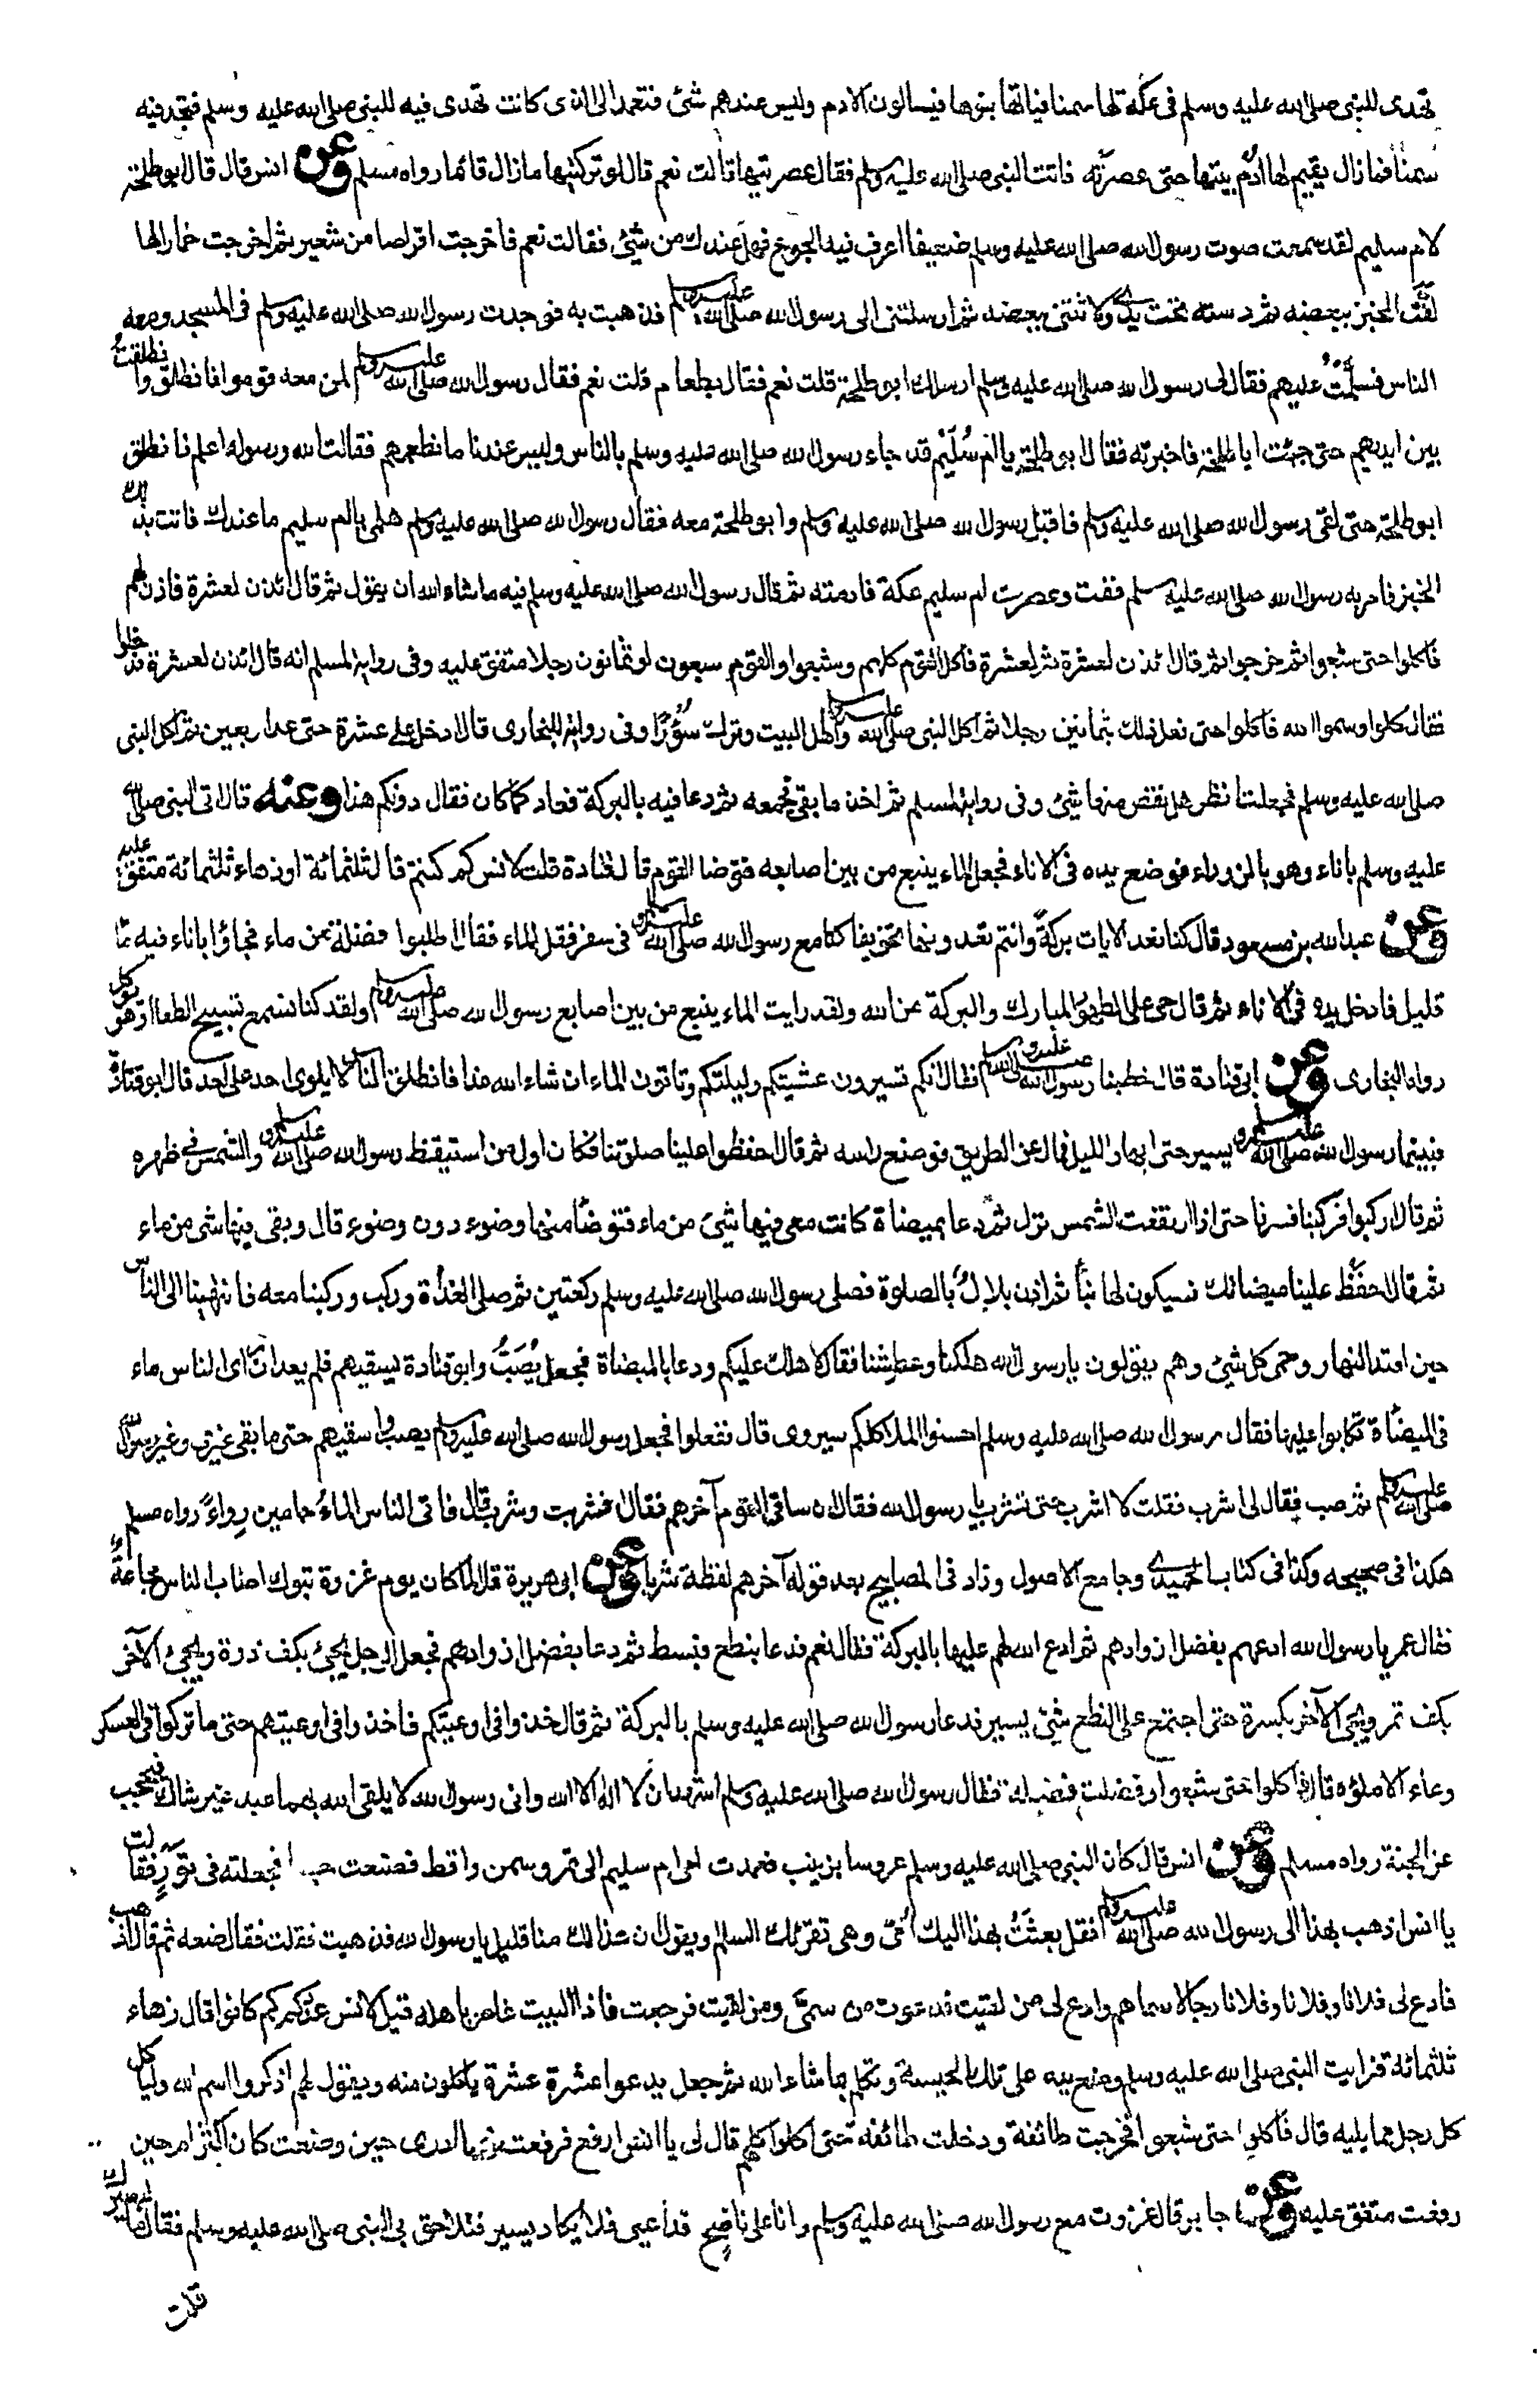 تهدى للنبى صلى الله عليه وسلم فى عكة لها سمنا فياتها بنوها فيسالون الادم وليس عندهم شئ فتعمد الى الذى كانت تهدى فيه للنبى صلى الله عليه وسلم فتجد فيه
سمنا فما زال يقيم لها ادم بيتها حتى عصرته فاتت النبى صلى الله عليه وسلم فقال عصرتيها قالت نعم قال لو تركتيها ما زال قائما رواه مسلم وعن انس قال قال ابو طلحة
لام سليم لقد سمعت صوت رسول الله صلى الله عليه وسلم ضعيفا اعرف فيه الجوع فهل عندك من شئ فقالت نعم فاخرجت اقراصا من شعير ثم اخرجت خمارا لها
فلفت الخبز ببعضه ثم دسته تحت يدى ولاثتنى ببعضه ثم ارسلتنى الى رسول الله صلى الله عليه وسلم فذهبت به فوجدت رسول الله صلى الله عليه وسلم فى المسجد ومعه
الناس فسلمت عليهم فقال لى رسول الله صلى الله عليه وسلم ارسلك ابو طلحة قلت نعم فقال بطعام قلت نعم فقال رسول الله صلى الله عليه وسلم لمن معه قوموا فانطلق وانطلقت
بين ايديهم حتى جئت ابا طلحة فاخبرته فقال ابو طلحة يا ام سليم قد جاء رسول الله صلى الله عليه وسلم بالناس وليس عندنا ما نطعمهم فقالت الله ورسوله اعلم فانطلق
ابو طلحة حتى لقى رسول الله صلى الله عليه وسلم فاقبل رسول الله صلى الله عليه وسلم وابو طلحة معه فقال رسول الله صلى الله عليه وسلم هلمى يا ام سليم ما عندك فاتت بذلك
الخبز فامر به رسول الله صلى الله عليه وسلم ففت وعصرت ام سليم عكة فادمته ثم قال رسول الله صلى الله عليه وسلم فيه ما شاء الله ان يقول ثم قال ائذن لعشرة فاذن لهم
فاكلوا حتى شبعوا ثم خرجوا ثم قال ائذن لعشرة ثم لعشرة فاكل القوم كلهم وشبعوا والقوم سبعون او ثمانون رجلا متفق عليه وفى رواية لمسلم انه قال ائذن لعشرة فدخلوا
فقال كلوا وسموا الله فاكلوا حتى فعل ذلك بثمانين رجلا ثم اكل النبى صلى الله عليه وسلم واهل البيت وترك سؤرا وفى رواية للبخارى قال ادخل على عشرة حتى عد اربعين ثم اكل النبى
صلى الله عليه وسلم فجعلت انظر هل نقص منها شئ وفى رواية لمسلم ثم اخذ ما بقى فجمعه ثم دعا فيه بالبركة فعاد كما كان فقال دونكم هذا وعنه قال اتى النبى صلى الله
عليه وسلم باناء وهو بالزوراء فوضع يده فى الاناء فجعل الماء ينبع من بين اصابعه فتوضا القوم قال قتادة قلت لانس كم كنتم قال ثلثمائة او زهاء ثلثمائة متفق عليه
وعن عبد الله بن مسعود قال كنا نعد الايات بركة وانتم تعدونها تخويفا كنا مع رسول الله صلى الله عليه وسلم فى سفر فقل الماء فقال اطلبوا فضلة من ماء فجاؤا باناء فيه ماء
قليل فادخل يده فى الاناء ثم قال حى على الطهور المبارك والبركة من الله ولقد رايت الماء ينبع من بين اصابع رسول الله صلى الله عليه وسلم ولقد كنا نسمع تسبيح الطعام وهو يوكل
رواه البخارى وعن ابى قتادة قال خطبنا رسول الله صلى الله عليه وسلم فقال انكم تسيرون عشيتكم وليلتكم وتاتون الماء ان شاء الله غدا فانطلق الناس لا يلوى احد على احد قال ابو قتادة
فبينما رسول الله صلى الله عليه وسلم يسير حتى ابهار الليل فمال عن الطريق فوضع راسه ثم قال احفظوا علينا صلوتنا فكان اول من استيقظ رسول الله صلى الله عليه وسلم والشمس فى ظهره
ثم قال اركبوا فركبنا فسرنا حتى اذا ارتفعت الشمس نزل ثم دعا بميضاة كانت معى فيها شئ من ماء فتوضا منها وضوء دون وضوء قال وبقى فيها شى من ماء
ثم قال احفظ علينا ميضاتك فسيكون لها نبأ ثم اذن بلال بالصلوة فصلى رسول الله صلى الله عليه وسلم ركعتين ثم صلى الغداة وركب وركبنا معه فانتهينا الى الناس
حين امتد النهار وحمى كل شئ وهم يقولون يا رسول الله هلكنا وعطشنا فقال لا هلك عليكم ودعا بالميضاة فجعل يصب وابو قتادة يسقيهم فلم يعد ان راى الناس ماء
فى الميضاة تكابوا عليها فقال رسول الله صلى الله عليه وسلم احسنوا الملأ كلكم سيروى قال ففعلوا فجعل رسول الله صلى الله عليه وسلم يصب واسقيهم حتى ما بقى غيرى وغير رسول الله
صلى الله عليه وسلم ثم صب فقال لى اشرب فقلت لا اشرب حتى تشرب يا رسول الله فقال ان ساقى القوم آخرهم فقال فشربت وشرب قال فاتى الناس الماء جامين رواء رواه مسلم
هكذا فى صحيحه وكذا فى كتاب الحميدى وجامع الاصول وزاد فى المصابيح بعد قوله آخرهم لفظة شربا وعن ابى هريرة قال لما كان يوم غزوة تبوك اصاب الناس مجاعة
فقال عمر يا رسول الله ادعهم بفضل ازوادهم ثم ادع الله لهم عليها بالبركة فقال نعم فدعا بنطع فبسط ثم دعا بفضل ازوادهم فجعل الرجل يجئ بكف ذرة ويجئ الآخر
بكف تمر ويجئ الآخر بكسرة حتى اجتمع على النطع شئ يسير فدعا رسول الله صلى الله عليه وسلم بالبركة ثم قال خذوا فى اوعيتكم فاخذوا فى اوعيتهم حتى ما تركوا فى العسكر
وعاء الا ملؤه قال فاكلوا حتى شبعوا وفضلت فضلة فقال رسول الله صلى الله عليه وسلم اشهد ان لا اله الا الله وانى رسول الله لا يلقى الله بهما عبد غير شاك فيحجب
عن الجنة رواه مسلم وعن انس قال كان النبى صلى الله عليه وسلم عروسا بزينب فعمدت امى ام سليم الى تمر وسمن واقط فصنعت حيسا فجعلته فى تور فقالت
يا انس اذهب بهذا الى رسول الله صلى الله عليه وسلم فقل بعثت بهذا اليك امى وهى تقرئك السلام ويقول ان هذا لك منا قليل يا رسول الله فذهبت فقلت فقال ضعه ثم قال اذهب
فادع لى فلانا وفلانا وفلانا رجالا سماهم وادع لى من لقيت فدعوت من سمى ومن لقيت فرجعت فاذا البيت غاص باهله قيل لانس عددكم كم كانوا قال زهاء
ثلثمائة فرايت النبى صلى الله عليه وسلم وضع يده على تلك الحيسة وتكلم بما شاء الله ثم جعل يدعو عشرة عشرة ياكلون منه ويقول لهم اذكروا اسم الله ولياكل
كل رجل مما يليه قال فاكلوا حتى شبعوا فخرجت طائفة ودخلت طائفة حتى اكلوا كلهم قال لى يا انس ارفع فرفعت فما ادرى حين وضعت كان اكثر ام حين
رفعت متفق عليه وعن جابر قال غزوت مع رسول الله صلى الله عليه وسلم وانا على ناضح قد اعيى فلا يكاد يسير فتلاحق بى النبى صلى الله عليه وسلم فقال ما لبعيرك
قلت